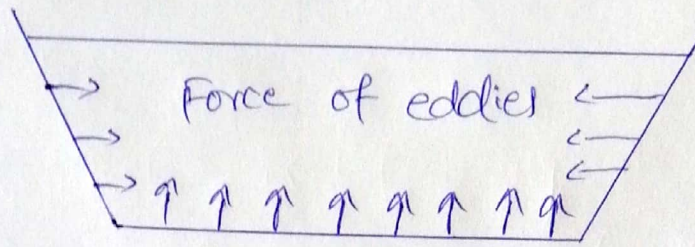 Force of eddies